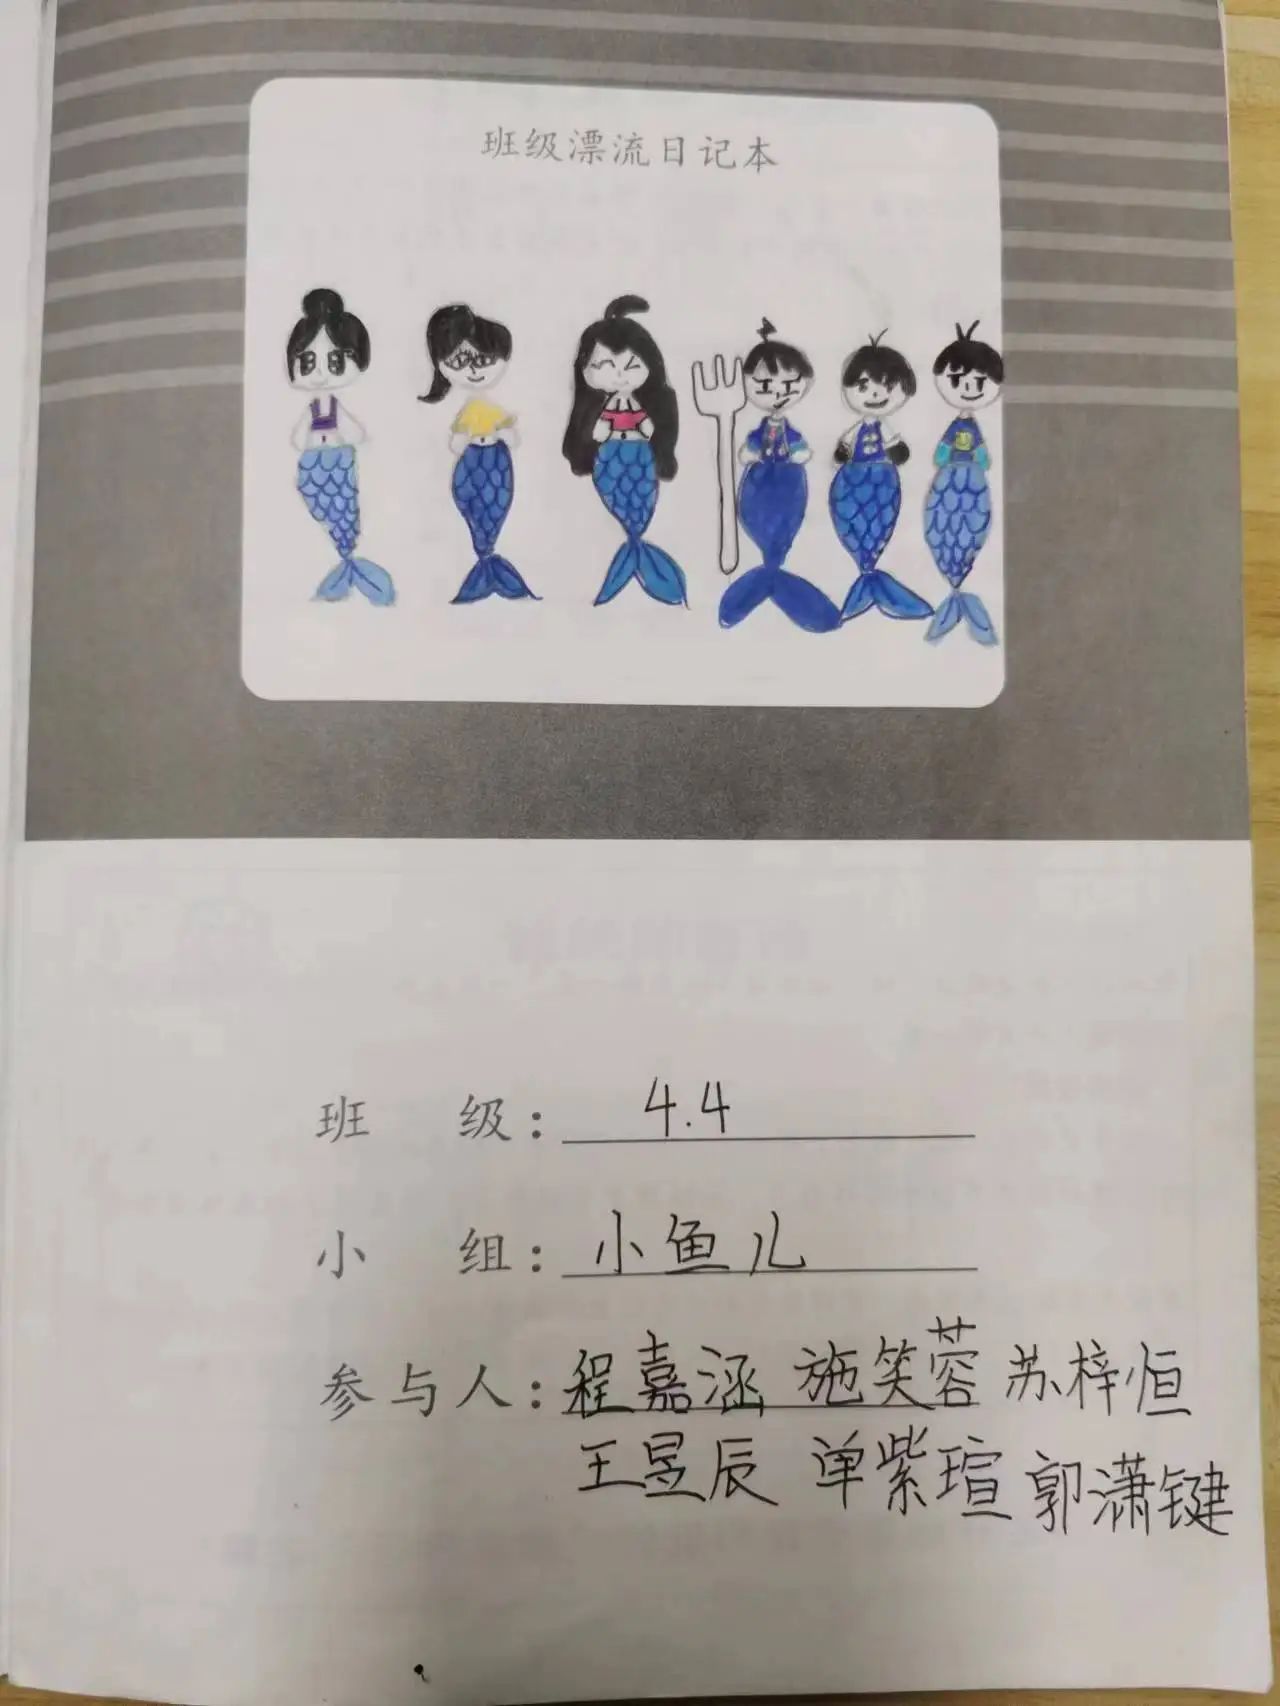 班级漂流日记本
班 级：4.4
小 组：小鱼儿
参与人：程嘉涵 施笑蓉 苏梓恒
王昱辰 单紫瑄 郭潇键